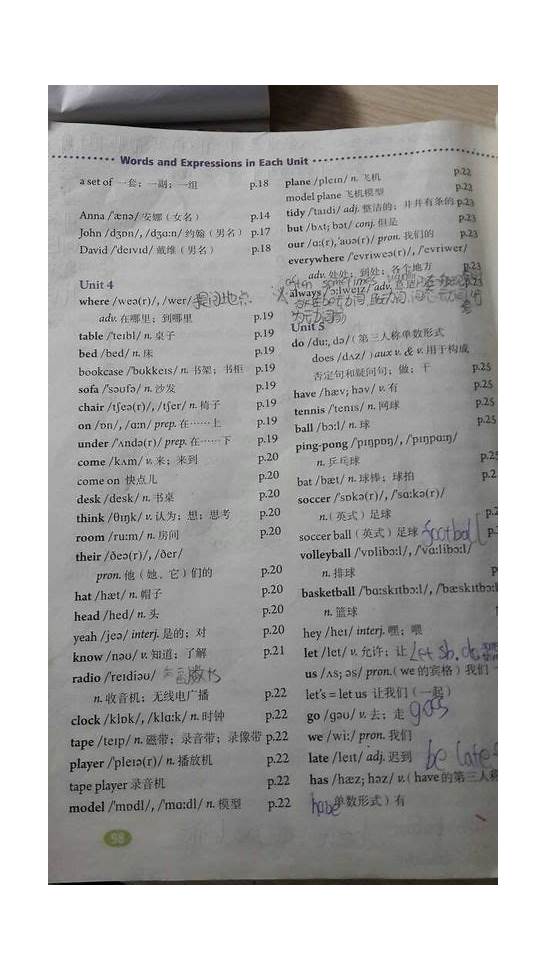 Words and Expressions in Each Unit
a set of 一套；一副；一组 p.18
Anna /'ænə/ 安娜（女名） p.14
John /dʒɒn/, /dʒɑ:n/ 约翰（男名） p.17
David /'deɪvɪd/ 戴维（男名） p.18
Unit 4
where /weə(r)/, /wer/ 提问地点
adv. 在哪里；到哪里 p.19
table /'teɪbl/ n. 桌子 p.19
bed /bed/ n. 床 p.19
bookcase /'bʊkkeɪs/ n. 书架；书柜 p.19
sofa /'səʊfə/ n. 沙发 p.19
chair /tʃeə(r)/, /tʃer/ n. 椅子 p.19
on /ɒn/, /ɑ:n/ prep. 在……上 p.19
under /'ʌndə(r)/ prep. 在……下 p.19
come /kʌm/ v. 来；来到 p.20
come on 快点儿 p.20
desk /desk/ n. 书桌 p.20
think /θɪŋk/ v. 认为；想；思考 p.20
room /ru:m/ n. 房间 p.20
their /ðeə(r)/, /ðer/
pron. 他（她、它）们的 p.20
hat /hæt/ n. 帽子 p.20
head /hed/ n. 头 p.20
yeah /jeə/ interj. 是的；对 p.20
know /nəʊ/ v. 知道；了解 p.21
radio /'reɪdiəʊ/
n. 收音机；无线电广播 p.22
clock /klɒk/, /klɑ:k/ n. 时钟 p.22
tape /teɪp/ n. 磁带；录音带；录像带 p.22
player /'pleɪə(r)/ n. 播放机 p.22
tape player 录音机 p.22
model /'mɒdl/, /'mɑ:dl/ n. 模型 p.22
98
plane /pleɪn/ n. 飞机 p.22
model plane 飞机模型 p.22
tidy /'taɪdi/ adj. 整洁的；井井有条的 p.23
but /bʌt; bət/ conj. 但是 p.23
our /ɑ:(r),'aʊə(r)/ pron. 我们的 p.23
everywhere /'evriweə(r)/, /'evriwer/
adv. 处处；到处；各个地方 p.23
often sometimes
always /'ɔ:lweɪz/ adv. 总是 p.23
Unit 5
do /du:, də/（第三人称单数形式
does /dʌz/）aux v. & v. 用于构成
否定句和疑问句；做；干 p.25
have /hæv; həv/ v. 有 p.25
tennis /'tenɪs/ n. 网球 p.25
ball /bɔ:l/ n. 球 p.25
ping-pong /'pɪŋpɒŋ/, /'pɪŋpɑ:ŋ/
n. 乒乓球 p.25
bat /bæt/ n. 球棒；球拍 p.2
soccer /'sɒkə(r)/, /'sɑ:kə(r)/
n.（英式）足球 p.2
soccer ball（英式）足球 football p.
volleyball /'vɒlibɔ:l/, /'vɑ:libɔ:l/
n. 排球 p
basketball /'bɑ:skɪtbɔ:l/, /'bæskɪtbɔ:l
n. 篮球
hey /heɪ/ interj. 嘿；喂
let /let/ v. 允许；让 Let sb. do
us /ʌs; əs/ pron.（we 的宾格）我们
let's = let us 让我们（一起）
go /gəʊ/ v. 去；走 goes
we /wi:/ pron. 我们
late /leɪt/ adj. 迟到 be late
has /hæz; həz/ v.（have 的第三人称
have 单数形式）有